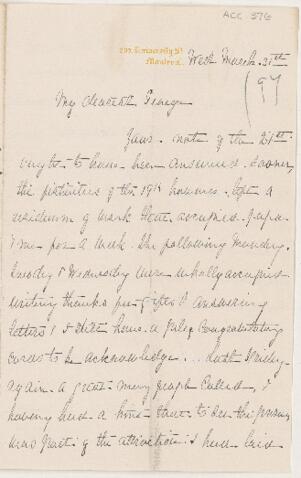 ACC 576
293 University St
Montreal
Wed. March 31st
(97
My dearest George
Your note of the 21st
ought to have been answered sooner,
the festivities of the 19th however left a
residuum of work that occupied Papa
& me for a week. The following Monday,
Tuesday & Wednesday were wholly occupied
writing thanks for gifts & answering
letters & I still have a pile of Congratulating
cards to be acknowledged ... last Friday
again a great many people called, &
having had a hint that to see the
was part of the attraction I had